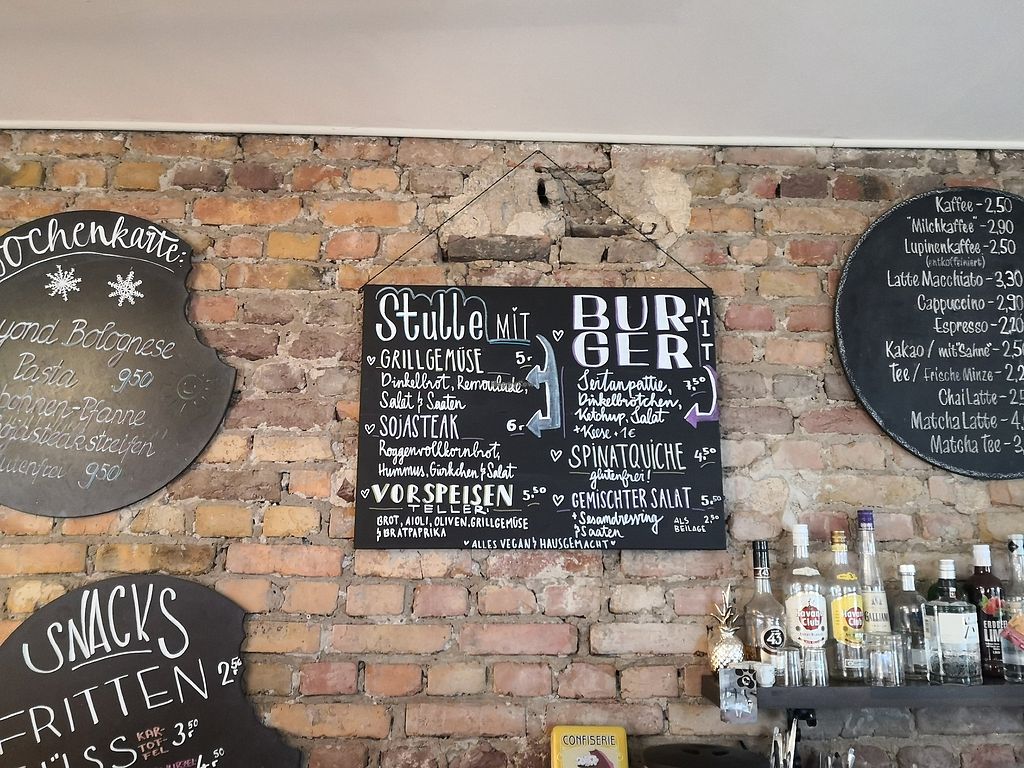 Wochenkarte:
Bolognese
Pasta 9,50
Pfanne
9,50
SNACKS
FRITTEN 2,50
KAR-
TOF-
FEL 3,50
Stulle MIT
GRILLGEMÜSE 5,-
Dinkelbrot, Remoulade,
Salat & Saaten
SOJASTEAK 6,-
Roggenvollkornbrot,
Hummus, Gürkchen & Salat
VORSPEISEN 5,50
TELLER
BROT, AIOLI, OLIVEN, GRILLGEMÜSE
& BRATPAPRIKA
BUR-
GER
MIT
Seitanpattie, 7,50
Dinkelbrötchen,
Ketchup, Salat
+ Käse · 1€
SPINATQUICHE 4,50
glutenfrei!
GEMISCHTER SALAT 5,50
+ Sesamdressing ALS 2,50
& Saaten BEILAGE
ALLES VEGAN & HAUSGEMACHT
Kaffee - 2,50
"Milchkaffee" - 2,90
Lupinenkaffee - 2,50
(entkoffeiniert)
Latte Macchiato - 3,30
Cappuccino - 2,90
Espresso - 2,20
Kakao / mit "Sahne" - 2,5
Tee / Frische Minze - 2,2
Chai Latte - 2,5
Matcha Latte - 4,
Matcha Tee - 3,
43
Havana
Club
Havana
Club
CONFISERIE